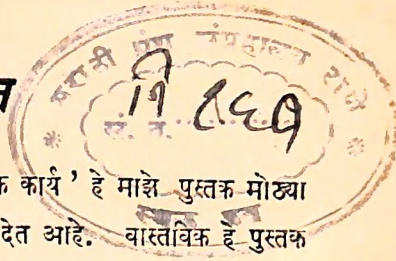 मराठी ग्रंथ संग्रहालय ठाणे
नि १८६७
क कार्य ' हे माझे पुस्तक मोठ्या
देत आहे. वास्तविक हे पुस्तक